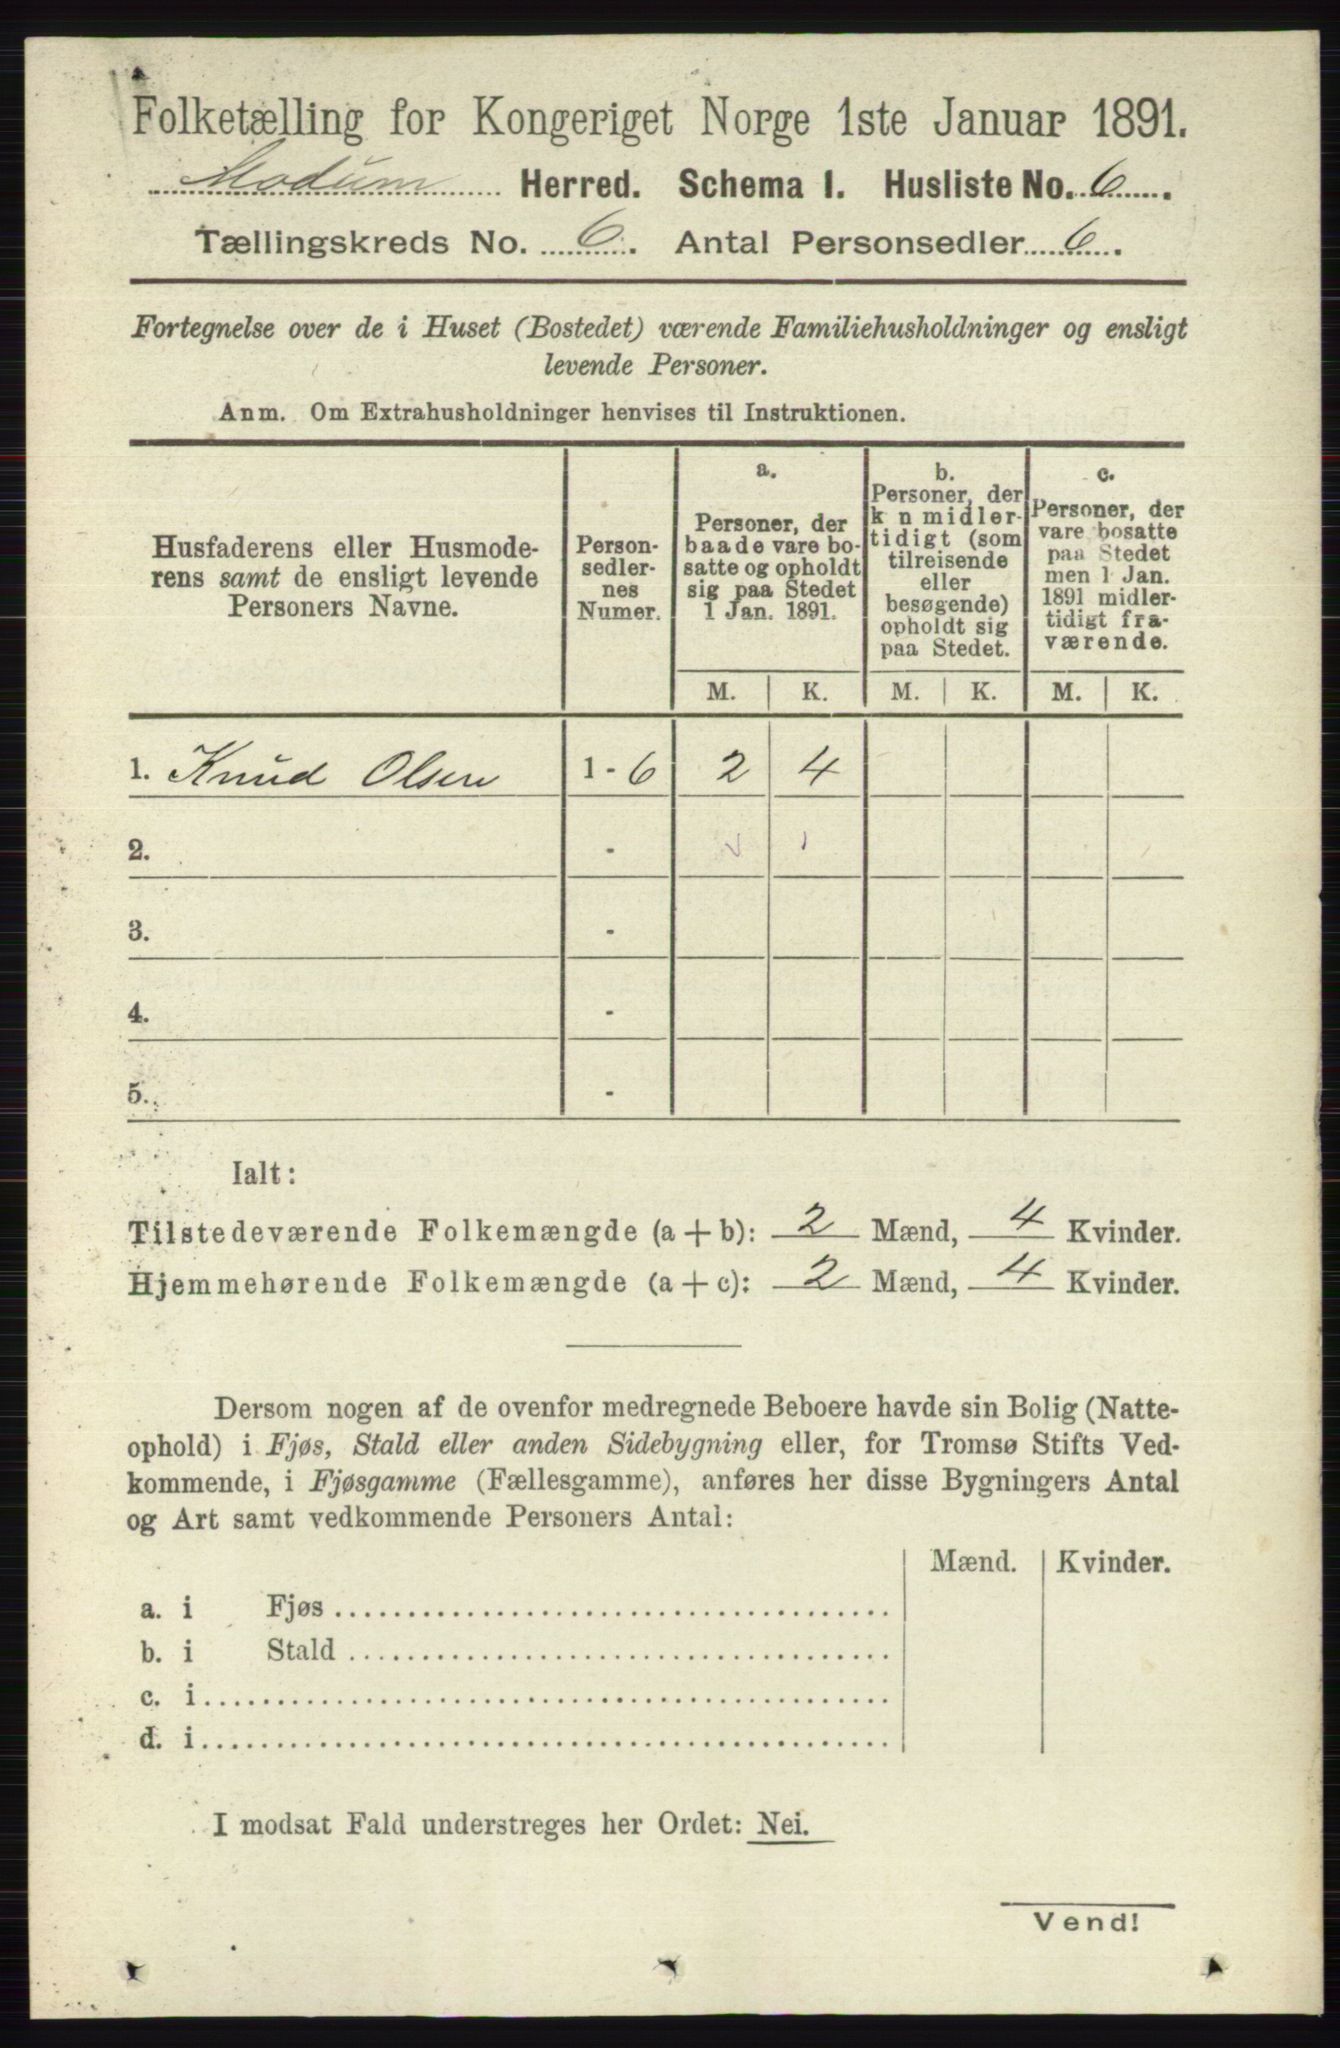 Folketælling for Kongeriget Norge 1ste Januar 1891.
Modum Herred. Schema 1. Husliste No. 6.
Tællingskreds No. 6. Antal Personsedler 6.
Fortegnelse over de i Huset (Bostedet) værende Familiehusholdninger og ensligt
levende Personer.
Anm. Om Extrahusholdninger henvises til Instruktionen.
Husfaderens eller Husmode-
rens samt de ensligt levende
Personers Navne.
Person-
sedler-
nes
Numer.
a.
Personer, der
baade vare bo-
satte og opholdt
sig paa Stedet
1 Jan. 1891.
b.
Personer, der
k n midler-
tidigt (som
tilreisende
eller
besøgende)
opholdt sig
paa Stedet.
c.
Personer, der
vare bosatte
paa Stedet
men 1 Jan.
1891 midler-
tidigt fra-
værende.
M. K. M. K. M. K.
1. Knud Olsen 1 - 6 2 4
2. -
3. -
4. -
5. -
Ialt:
Tilstedeværende Folkemængde (a + b): 2 Mænd, 4 Kvinder.
Hjemmehørende Folkemængde (a + c): 2 Mænd, 4 Kvinder.
Dersom nogen af de ovenfor medregnede Beboere havde sin Bolig (Natte-
ophold) i Fjøs, Stald eller anden Sidebygning eller, for Tromsø Stifts Ved-
kommende, i Fjøsgamme (Fællesgamme), anføres her disse Bygningers Antal
og Art samt vedkommende Personers Antal:
Mænd. Kvinder.
a. i Fjøs
b. i Stald
c. i
d. i
I modsat Fald understreges her Ordet: Nei.
Vend!